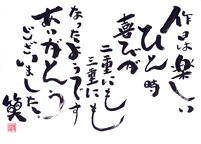 作日は楽しい
ひと時
喜びが
二重にも
三重にも
なったようです
ありがとう
ございました